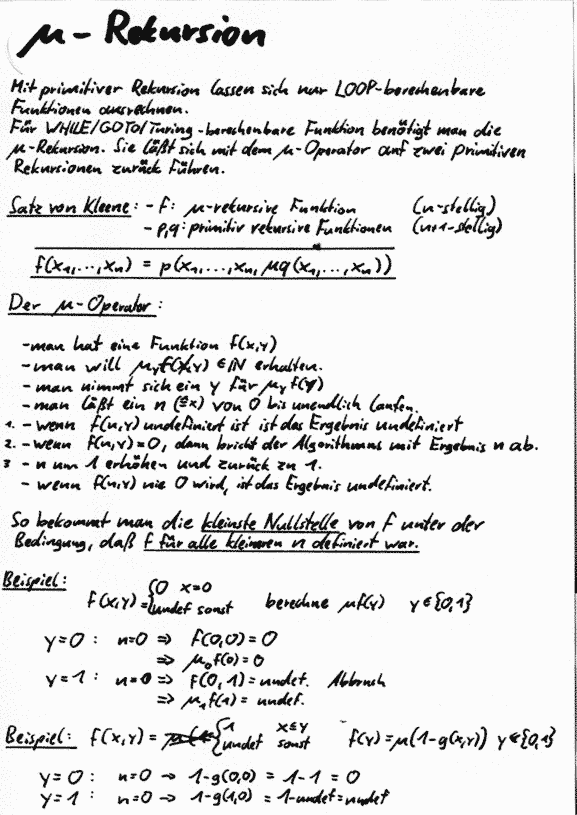 μ-Rekursion
Mit primitiver Rekursion lassen sich nur LOOP-berechenbare
Funktionen ausrechnen.
Für WHILE/GOTO/Turing-berechenbare Funktion benötigt man die
μ-Rekursion. Sie läßt sich mit dem μ-Operator auf zwei primitiven
Rekursionen zurück führen.
Satz von Kleene: - f: μ-rekursive Funktion (n-stellig)
- p,q: primitiv rekursive Funktionen (n+1-stellig)
f(x₁,...,xₙ) = p(x₁,...,xₙ, μq(x₁,...,xₙ))
Der μ-Operator:
- man hat eine Funktion f(x,y)
- man will μyf(x,y) ∈ ℕ erhalten.
- man nimmt sich ein y für μyf(y)
- man läßt ein n (≙x) von 0 bis unendlich laufen.
1. - wenn f(n,y) undefiniert ist ist das Ergebnis undefiniert
2. - wenn f(n,y)=0, dann bricht der Algorithmus mit Ergebnis n ab.
3 - n um 1 erhöhen und zurück zu 1.
- wenn f(n,y) nie 0 wird, ist das Ergebnis undefiniert.
So bekommt man die kleinste Nullstelle von f unter der
Bedingung, daß f für alle kleineren n definiert war.
Beispiel:
f(x,y) = {0 x=0
undef sonst berechne μf(y) y∈{0,1}
y=0: n=0 ⇒ f(0,0)=0
⇒ μ₀f(0)=0
y=1: n=0 ⇒ f(0,1)=undef. Abbruch
⇒ μ₁f(1)=undef.
Beispiel: f(x,y) = {1 x≤y
undef sonst f(y)=μ(1-g(x,y)) y∈{0,1}
y=0: n=0 → 1-g(0,0) = 1-1 = 0
y=1: n=0 → 1-g(1,0) = 1-undef=undef